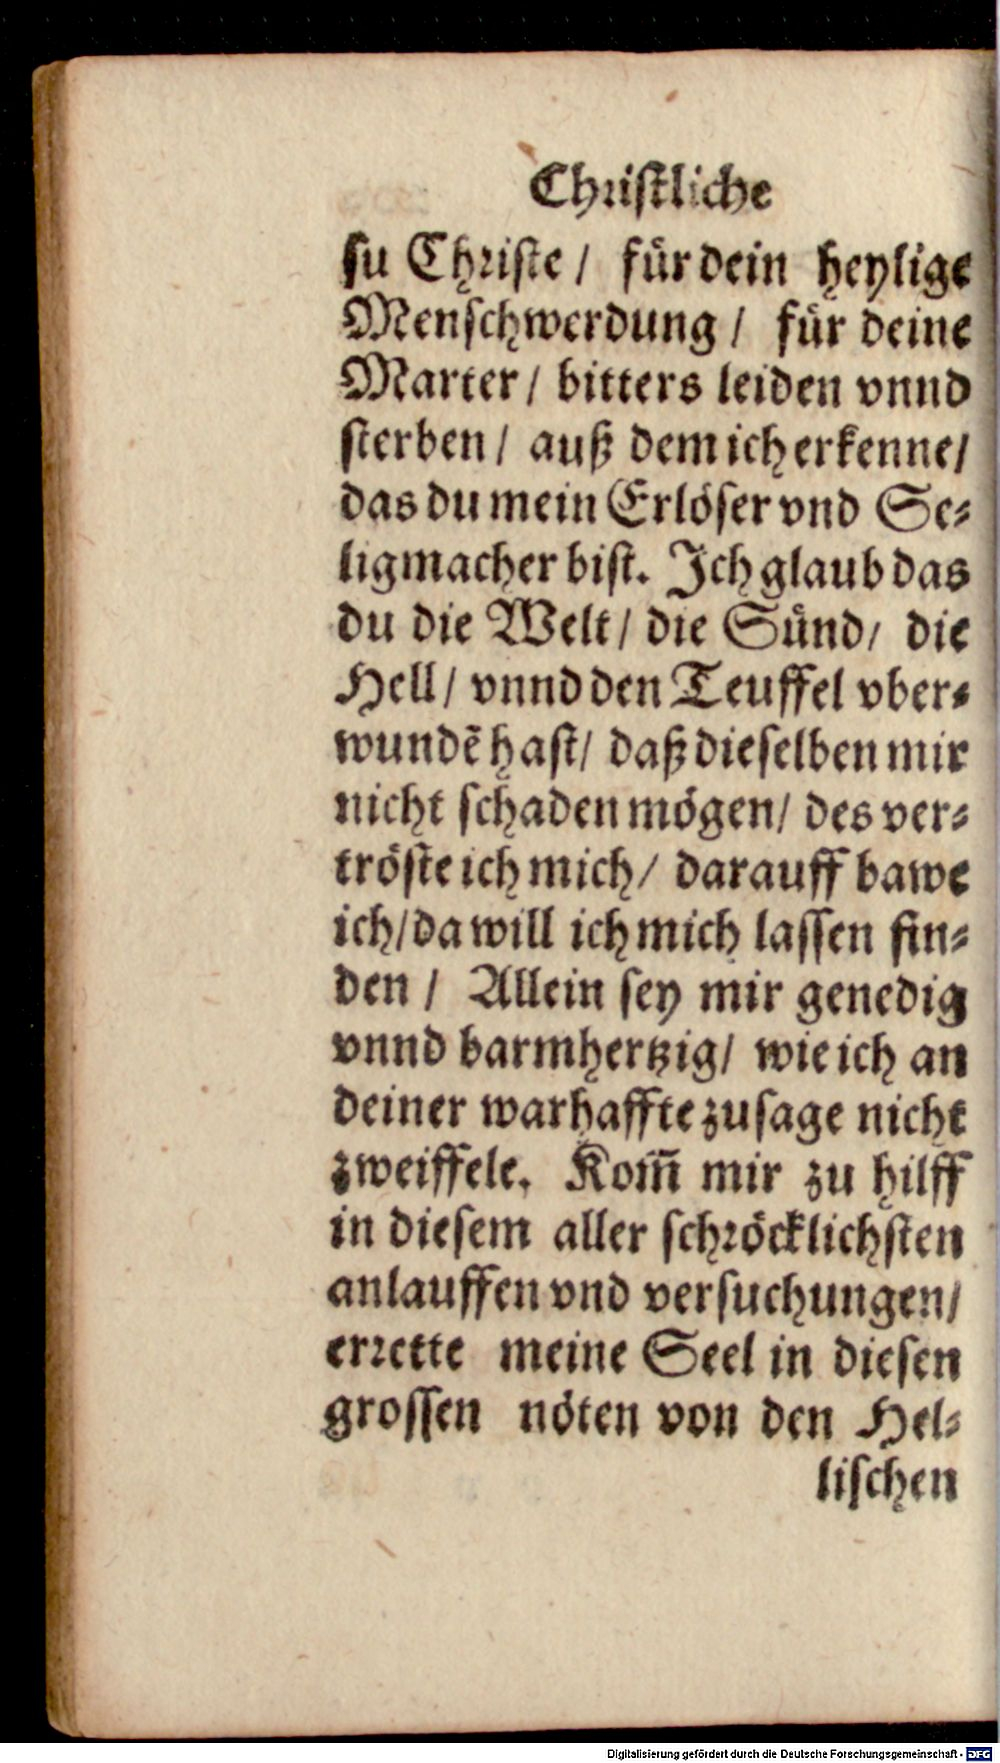 Christliche
su Christe / für dein heylige
Menschwerdung / für deine
Marter / bitters leiden vnnd
sterben / auß dem ich erkenne /
das du mein Erlöser vnd Se⸗
ligmacher bist. Ich glaub das
du die Welt / die Sünd / die
Hell / vnnd den Teuffel vber⸗
wundẽ hast / daß dieselben mir
nicht schaden mögen / des ver⸗
tröste ich mich / darauff bawe
ich / da will ich mich lassen fin⸗
den / Allein sey mir genedig
vnnd barmhertzig / wie ich an
deiner warhaffte zusage nicht
zweiffele. Kom̃ mir zu hilff
in diesem aller schröcklichsten
anlauffen vnd versuchungen /
errette meine Seel in diesen
grossen nöten von den Hel⸗
lischen
Digitalisierung gefördert durch die Deutsche Forschungsgemeinschaft - DFG